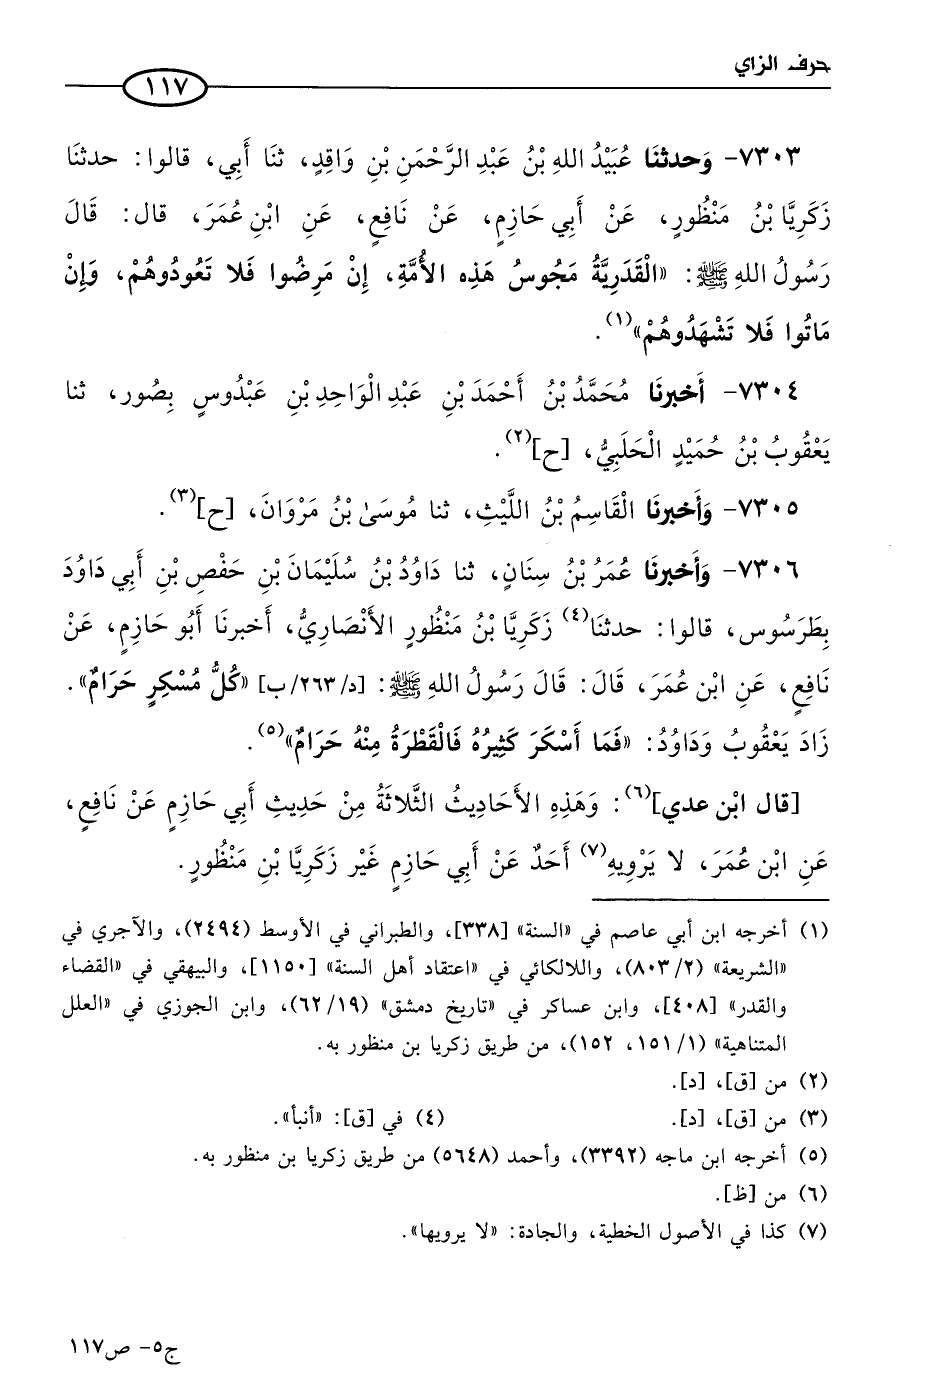 حرف الزاي
١١٧
٧٣٠٣- وَحدثنَا عُبَيْدُ اللهِ بْنُ عَبْدِ الرَّحْمَنِ بْنِ وَاقِدٍ، ثنَا أَبِي، قالوا: حدثنَا
زَكَرِيَّا بْنُ مَنْظُورٍ، عَنْ أَبِي حَازِمٍ، عَنْ نَافِعٍ، عَنِ ابْنِ عُمَرَ، قال: قَالَ
رَسُولُ اللهِ ﷺ: «الْقَدَرِيَّةُ مَجُوسُ هَذِه الأُمَّةِ، إِنْ مَرِضُوا فَلا تَعُودُوهُمْ، وَإِنْ
مَاتُوا فَلا تَشْهَدُوهُمْ»(١).
٧٣٠٤- أَخبرنَا مُحَمَّدُ بْنُ أَحْمَدَ بْنِ عَبْدِ الْوَاحِدِ بْنِ عَبْدُوسٍ بِصُور، ثنا
يَعْقُوبُ بْنُ حُمَيْدٍ الْحَلَبِيُّ، [ح](٢).
٧٣٠٥- وَأَخبرنَا الْقَاسِمُ بْنُ اللَّيْثِ، ثنا مُوسَىٰ بْنُ مَرْوَانَ، [ح](٣).
٧٣٠٦- وَأَخبرنَا عُمَرُ بْنُ سِنَانٍ، ثنا دَاوُدُ بْنُ سُلَيْمَانَ بْنِ حَفْصِ بْنِ أَبِي دَاوُدَ
بِطَرَسُوس، قالوا: حدثنَا(٤) زَكَرِيَّا بْنُ مَنْظُورٍ الأَنْصَارِيُّ، أَخبرنَا أَبُو حَازِمٍ، عَنْ
نَافِعٍ، عَنِ ابْن عُمَرَ، قَالَ: قَالَ رَسُولُ اللهِ ﷺ: [د/٢٦٣/ب] «كُلُّ مُسْكِرٍ حَرَامٌ».
زَادَ يَعْقُوبُ وَدَاوُدُ: «فَمَا أَسْكَرَ كَثِيرُهُ فَالْقَطْرَةُ مِنْهُ حَرَامٌ»(٥).
[قال ابْن عدي](٦): وَهَذِهِ الأَحَادِيثُ الثَّلاثَةُ مِنْ حَدِيثِ أَبِي حَازِمٍ عَنْ نَافِعٍ،
عَنِ ابْن عُمَرَ، لا يَرْوِيهِ(٧) أَحَدٌ عَنْ أَبِي حَازِمٍ غَيْر زَكَرِيَّا بْنِ مَنْظُورٍ.
(١) أخرجه ابن أبي عاصم في «السنة» [٣٣٨]، والطبراني في الأوسط (٢٤٩٤)، والآجري في
«الشريعة» (٢/ ٨٠٣)، واللالكائي في «اعتقاد أهل السنة» [١١٥٠]، والبيهقي في «القضاء
والقدر» [٤٠٨]، وابن عساكر في «تاريخ دمشق» (١٩/ ٦٢)، وابن الجوزي في «العلل
المتناهية» (١/ ١٥١، ١٥٢)، من طريق زكريا بن منظور به.
(٢) من [ق]، [د].
(٣) من [ق]، [د]. (٤) في [ق]: «أنبأ».
(٥) أخرجه ابن ماجه (٣٣٩٢)، وأحمد (٥٦٤٨) من طريق زكريا بن منظور به.
(٦) من [ظ].
(٧) كذا في الأصول الخطية، والجادة: «لا يرويها».
ج٥- ص١١٧